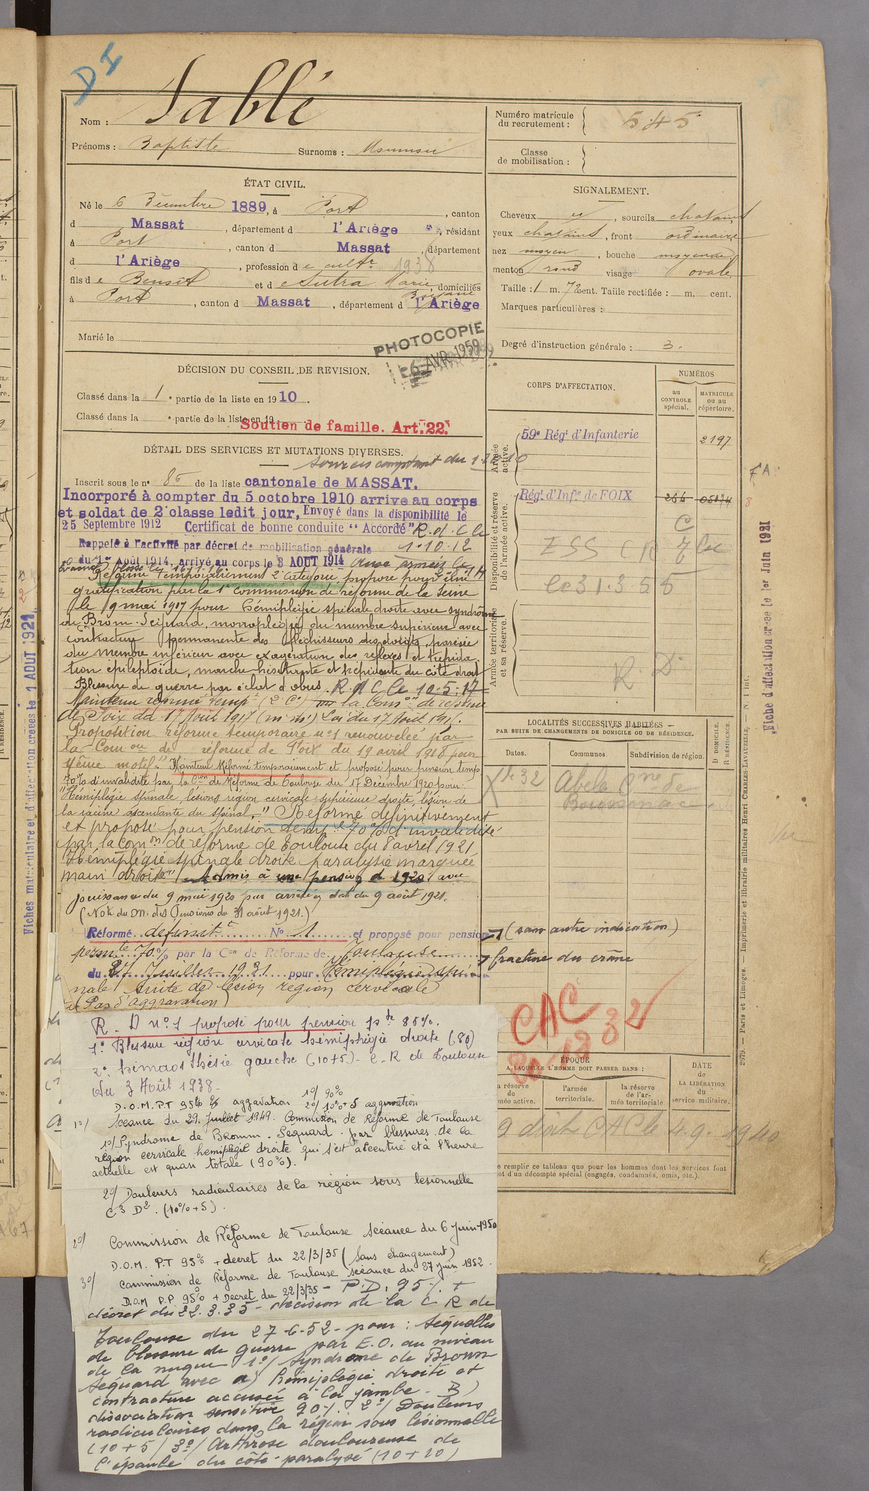 DI
Nom : Sablé
Prénoms : Baptiste Surnoms :
Numéro matricule du recrutement : 545
Classe de mobilisation :
ÉTAT CIVIL.
Né le 6 Décembre 1889, à Port, canton
d Massat, département d l'Ariège, résidant
à Port, canton d Massat, département
d l'Ariège, profession d e cultr 1938
fils d e Benoit et d e Sutra Marie, domiciliés
à Port, canton d Massat, département d l'Ariège
Marié le
PHOTOCOPIE
6 AVR 1959
SIGNALEMENT.
Cheveux, sourcils chatains
yeux chatains, front ordinaire
nez moyen, bouche moyenne
menton rond visage ovale
Taille : 1 m. 72 cent. Taille rectifiée : m. cent.
Marques particulières :
Degré d'instruction générale : 3.
DÉCISION DU CONSEIL DE REVISION.
Classé dans la 1e partie de la liste en 1910.
Classé dans la e partie de la liste en 19
Soutien de famille. Art. 22.
DÉTAIL DES SERVICES ET MUTATIONS DIVERSES.
Inscrit sous le n° 85 de la liste cantonale de MASSAT.
Incorporé à compter du 5 octobre 1910 arrive au corps
et soldat de 2e classe ledit jour, Envoyé dans la disponibilité le
25 Septembre 1912 Certificat de bonne conduite "Accordé" R. d. C le
1.10.12
Rappelé à l'activité par décret de mobilisation générale
du 1er Août 1914, arrivé au corps le 3 AOUT 1914
Réformé temporairement 2e catégorie proposé pour une
gratification par la 1e commission de réforme de la Seine
le 9 mai 1917 pour hémiplégie spinale droite avec syndrôme
de Brown-Sequard, monoplégie du membre supérieur avec
contracture permanente des fléchisseurs des doigts, parésie
du membre inférieur avec exagération des réflexes et trépida
tion épileptoïde, marche hésitante et trépidante du côté droit
Blessure de guerre par éclat d'obus. R A C le 10-5-17
Maintenu réformé temp. (2e Cie) par la Comon de réforme
de Foix du 17 Août 1917
Proposition réforme temporaire n°1 renouvelée par
la Comon de réforme de Foix du 19 avril 1918 pour
même motif. Maintenu Réformé temporairement et proposé pour pension temp
70% d'invalidité par la Con de Réforme de Toulouse du 17 Décembre 1920 pour:
"Hémiplégie spinale, lésions région cervicale supérieure droite, lésion de
la racine ascendante du spinal". Réformé définitivement
et proposé pour pension temp. 70% d'invalidité
par la Comon de réforme de Toulouse du 8 avril 1921
"Hémiplégie spinale droite paralysie marquée
main droite" Admis à une pension d 1920 avec
jouissance du 9 mai 1920 par arrêté du 9 août 1921.
(Not. du M. des Pensions du 31 août 1921.)
Réformé définit. N° 1 et proposé pour pension
permte 70% par la Con de Réforme de Toulouse
du 21 Juillet 1921 pour Hémiplégie spi
nale suite de lésion région cervicale
Pas d'aggravation)
(sans autre indication)
fracture du crâne
CORPS D'AFFECTATION.
NUMÉROS
AU CONTROLE spécial.
MATRICULE OU AU répertoire.
Armée active.
59e Régt d'Infanterie 2197
Disponibilité et réserve de l'armée active.
Régt d'Infie de FOIX
Armée territoriale et sa réserve.
R. D.
LOCALITÉS SUCCESSIVES HABITÉES
PAR SUITE DE CHANGEMENTS DE DOMICILE OU DE RÉSIDENCE.
Dates.
Communes.
Subdivision de région.
D. DOMICILE.
R. RÉSIDENCE.
CAC
ÉPOQUE
A LAQUELLE L'HOMME DOIT PASSER DANS :
la réserve de l'armée active.
l'armée territoriale.
la réserve de l'armée territoriale
DATE de LA LIBÉRATION du service militaire.
CAC le 4.9.1940
Fiches matriculaire et d'affectation créées le 1 AOUT 1921
Fiche d'affectation créée le 1er Juin 1921
2979. — Paris et Limoges. — Imprimerie et librairie militaires Henri CHARLES-LAVAUZELLE. — N. 1 int.
R. D n°1 proposé pour pension pte 85%.
1° Blessure région cervicale hémiplégie droite (80)
2° hémianesthésie gauche (10+5) - C. R de Toulouse
du 3 Août 1938.
D.O.M. P.T 95% aggravation 1°/ 90%
2°/ 10%+5 aggravation
1°/ Séance du 29 juillet 1949. Commission de Réforme de Toulouse
1°/ Syndrome de Bromn. Séquard. par blessures de la
région cervicale hémiplégie droite qui s'est accentué et à l'heure
actuelle est quasi totale (90%).
2°/ Douleurs radiculaires de la région sous lésionnelle
C3 D2. (10%+5).
2°/ Commission de Réforme de Toulouse séance du 6 juin 1950
D.O.M. P.T 95% + décret du 22/3/35 (sans changement)
3°/ Commission de Réforme de Toulouse séance du 27 juin 1952.
D.O.M P.P 95% + Décret du 22/3/35 - P.D. 95% +
décret du 22.3.35 - décision de la C R de
Toulouse du 27-6-52 - pour : Séquelles
de blessure de guerre par E.O. au niveau
de la nuque 1°/ Syndrome de Bromn
Sequard avec a) hémiplégie droite et
contracture accusée à la jambe - B)
dissociation sensitive 90% 2°/ Douleurs
radiculaires dans la région sous lésionnelle
(10+5) 3°/ Arthrose douloureuse de
l'épaule du côté paralysé (10+10)